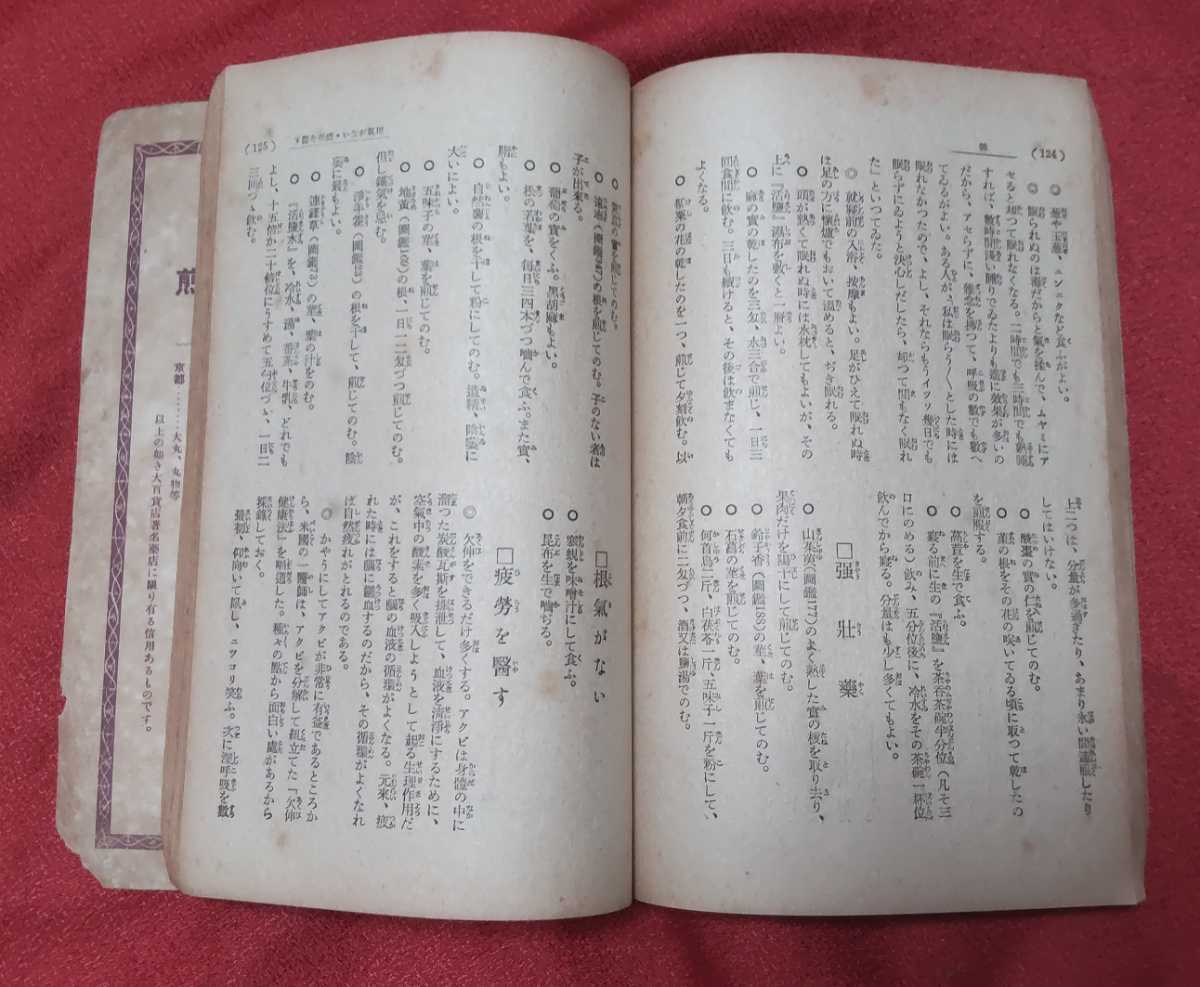 (124)
◎ 葱や玉葱、ニンニクなど食ふがよい。
◎ 眠られぬのは毒だからと氣を揉んで、ムヤミにア
セると却つて眠れなくなる。二時間でも三時間でも熟睡
すれば、數時間淺い眠りでゐたより遙に效果が多いの
だから、アセらずに、雜念を拂つて、呼吸の數でも數へ
てゐるがよい。ある人が『私は眠らう〱とした時には
眠れなかつたので、よし、それならもうイツソ幾日でも
眠らずにゐようと決心しだしたら、却つて間もなく眠れ
た』といつてゐた。
◎ 就寢前の入浴、按摩もよい。足がひえて眠れぬ時
は足の方に懷爐でもおいて温めると、ぢき眠れる。
◎ 頭が熱くて眠れぬ時には水枕してもよいが、その
上に『活鹽』濕布を敷くと一層よい。
○ 麻の實の乾したのを三匁、水三合で煎じ、一日三
回食間に飮む。三日も續けると、その後は飮まなくても
よくなる。
○ 罌粟の花の乾したのを一つ、煎じて夕刻飮む。以
上二つは、分量が多過ぎたり、あまり永い間連服したり
してはいけない。
○ 酸棗の實の仁を煎じてのむ。
○ 菫の根をその花の咲いてゐる頃に取つて乾したの
を煎服する。
○ 萵苣を生で食ふ。
◎ 寢る前に生の『活鹽』を茶呑茶碗半分位(凡そ三
口にのめる)飮み、五分位後に、冷水をその茶碗一杯位
飮んでから寢る。分量はも少し多くてもよい。
□强壯藥
○ 山茱萸(圖鑑177)のよく熟した實の核を取り去り、
果肉だけを陽干にして煎じてのむ。
○ 鈴子香(圖鑑188)の莖、葉を煎じてのむ。
○ 石菖の莖を煎じてのむ。
○ 何首烏二斤、白茯苓一斤、五味子一斤を粉にして、
朝夕食前に二匁づつ、酒又は鹽湯でのむ。
(125)
の實を煎じてのむ。
○ 遠志の根を煎じてのむ。子のない者は
子が出來る。
○ 葡萄の實をくふ。黑胡麻もよい。
○ の若葉を、毎日三四本づつ嚙んで食ふ。また實、
もよい。
○ 自然薯の根を干して粉にしてのむ。遺精、陰萎に
大いによい。
○ 五味子の莖、葉を煎じてのむ。
○ 地黃(圖鑑169)の根、一日一二匁づつ煎じてのむ。
但し鐵氣を忌む。
○ 淫羊藿の根を干して、煎じてのむ。陰
萎に最もよい。
○ 連錢草の莖、葉の汁をのむ。
◎ 『活鹽水』を、冷水、湯、番茶、牛乳、どれでも
よし、十五倍か二十倍位にうすめて五勺位づゝ、一日二
三回づゝ飮む。
□根氣がない
○ 蜆を味噌汁にして食ふ。
○ 昆布を生で嚙ぢる。
□疲勞を醫す
◎ 欠伸をできるだけ多くする。アクビは身體の中に
溜つた炭酸瓦斯を排泄して、血液を淸淨にするために、
空氣中の酸素を多く吸入しようとして起る生理作用だ
が、これをすると腦の血液の循環がよくなる。元來、疲
れた時には腦に鬱血するのだから、その循環がよくなれ
ば自然疲れがとれるのである。
◎ かやうにしてアクビが非常に有益であるところか
ら、米國の一醫師は、アクビを分解して組立てた『欠伸
健康法』を唱道した。種々の點から面白い處があるから
採錄しておく。
最初、仰向いて寢し、ニツコリ笑ふ。次に深呼吸を數
煎
京都………大丸、丸物等
以上の如き大百貨店著名藥店に限り有る信用あるものです。